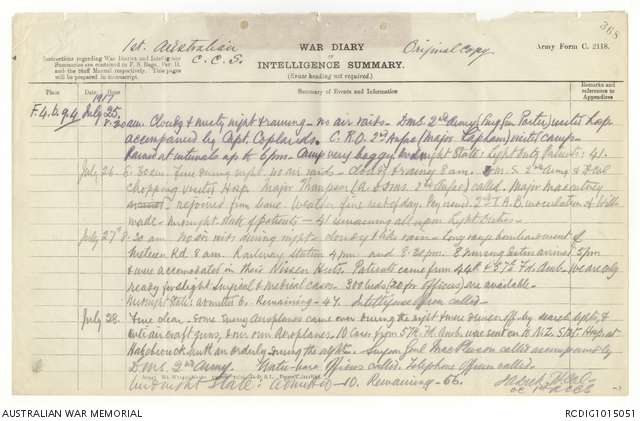 368
1st. Australian C.C.S.
WAR DIARY
or
INTELLIGENCE SUMMARY.
(Erase heading not required.)
Original copy
Army Form C. 2118.
Instructions regarding War Diaries and Intelligence
Summaries are contained in F. S. Regs., Part II.
and the Staff Manual respectively. Title pages
will be prepared in manuscript.
Place
Date
Hour
Summary of Events and Information
Remarks and
references to
Appendices
1917
July 25. 8.30am. Cloudy & misty night & raining - no air raids - D.M.S. 2nd Army (Surg Gen Porter) visited Hosp
accompanied by Capt. Copland. C.R.O. 2nd Anzac (Major Lapham) visited camp -
Rained at intervals up to 6pm - Camp very boggy Midnight State: Light Duty Patients: 41.
July 26. 8.30am. Fine during night. no air raids - cloudy & rainy 8am. D.M.S. 2nd Army &
visited Hosp. Major Thompson called. Major
rejoined from leave. Weather fine rest of day. inoculation of
made - Midnight State of patients - 41 remaining all upon Light Duties -
July 27th 8.30 am. No air raids during night - cloudy & little rain - long range bombardment of
Meteren Rd. 8 am. Railway Station 4 pm. and 8.30 pm. 8 nursing sisters arrived 5pm
& were accomodated in their Nissen Huts. Patients came from 44th & 5/2 Fd. Amb. We are only
ready for slight Surgical & medical cases. 300 beds (20 for officers) are available -
Midnight State: admitted 6. Remaining - 47. Intelligence officer called.
July 28. Fine clear - some enemy Aeroplanes came over during the night & were driven off by search lights, &
anti aircraft guns, & our own Aeroplanes. 10 Cases from 57th Fd. Amb. were sent on to N.Z. Stat. Hosp at
Hazebrouck with an orderly during the night - Surgeon Genl MacPherson called accompanied by
D.M.S. 2nd Army. Water-cart Officer called. Telephone officer called.
Midnight State: Admitted - 10. Remaining - 56.
AUSTRALIAN WAR MEMORIAL
RCDIG1015051